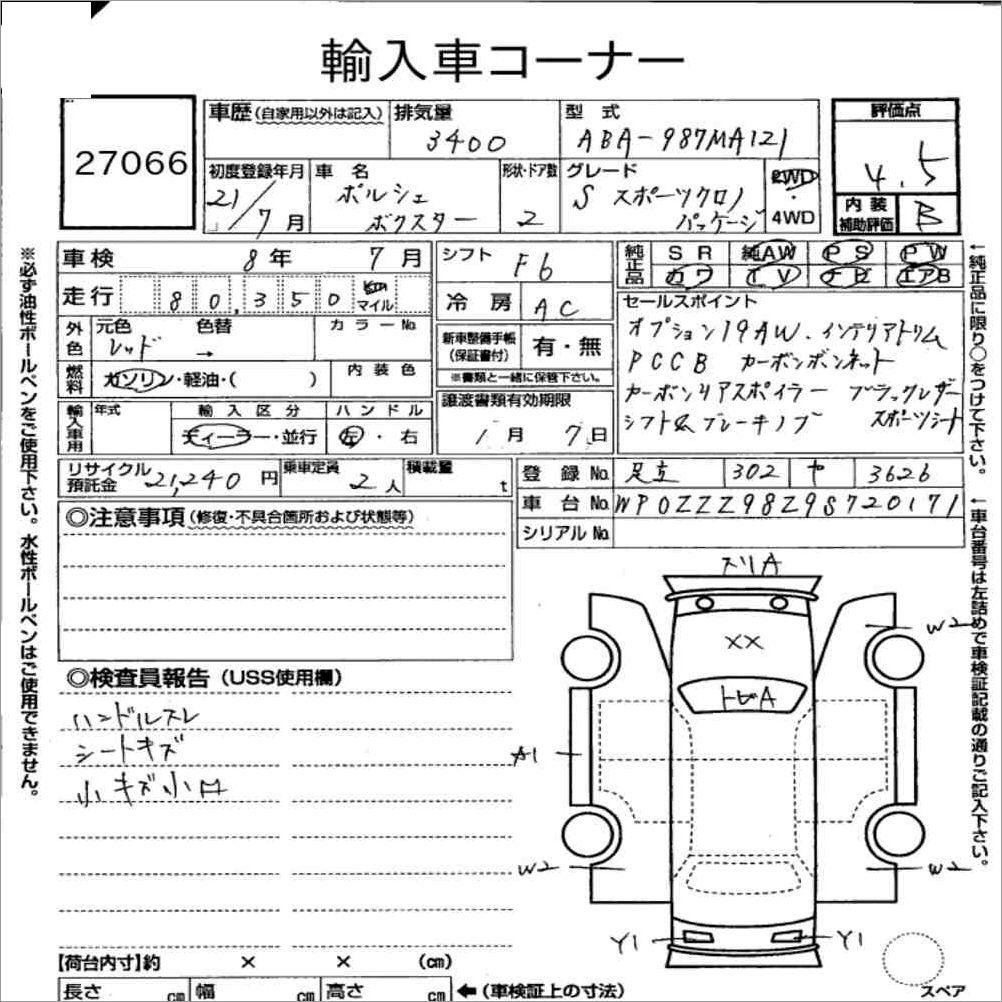 輸入車コーナー
27066
車歴(自家用以外は記入) 排気量 3400 型式 ABA-987MA121 評価点 4.5
初度登録年月 21/7月 車名 ポルシェ ボクスター 形状・ドア数 2 グレード S スポーツクロノ パッケージ 2WD・4WD 内装補助評価 B
車検 8年 7月 シフト F6 純正品 SR 純AW PS PW
カワ TV ナビ エアB
走行 80,350 km マイル 冷房 AC セールスポイント
外色 元色 レッド 色替 → カラーNo. 新車整備手帳(保証書付) 有・無 オプション19AW.インテリアトリム
※書類と一緒に保管下さい。 PCCB カーボンボンネット
燃料 ガソリン・軽油・( ) 内装色 譲渡書類有効期限 カーボンリアスポイラー ブラックレザー
輸入車用 年式 輸入区分 ディーラー・並行 ハンドル 左・右 1月 7日 シフト&ブレーキノブ スポーツシート
リサイクル預託金 21,240円 乗車定員 2人 積載量 t 登録No. 足立 302 ヤ 3626
車台No. WP0ZZZ98Z9S720171
シリアルNo.
◎注意事項(修復・不具合箇所および状態等)
◎検査員報告(USS使用欄)
ハンドルスレ
シートキズ
小キズ小凹
スリA
XX
トビA
W2
A1
W2
W2
Y1
Y1
スペア
【荷台内寸】約 × × (cm)
長さ cm 幅 cm 高さ cm ←(車検証上の寸法)
※必ず油性ボールペンをご使用下さい。水性ボールペンはご使用できません。
←純正品に限り○をつけて下さい。
←車台番号は左詰めで車検証記載の通りご記入下さい。